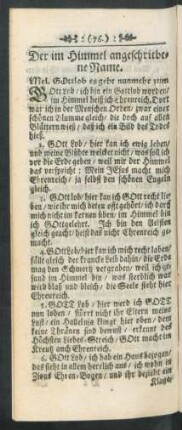 : (76.) :
Der im Himmel angeschriebe-
ne Name.
Mel. Gottlob es geht nunmehr zum
GOtt Lob / ich bin ein Gottlob worden /
im Himmel heißt ich Ehrenreich, Dort
war ich in der Menschen Orden / zwar einer
schönen Blumme gleich / die doch auf allen
Blättern wieß / daß ich ein Bild des Todes
hieß.
2. GOtt Lob / hier kan ich ewig leben /
und meine Blätter welcken nicht / was soll ich
vor die Erde geben / weil mir der Himmel
das verspricht: Mein JEsus macht mich
Ehrenreich / ja selbst den schönen Engeln
gleich.
3. GOttlob / hier kan ich GOtt recht lie-
ben / wie ihr mich dort an gehört / ich darf
mich nicht im lernen üben / im Himmel bin
ich GOttgelehrt. Ich bin den Weisen
gleich geacht / weil das nicht Ehrenreich ge-
macht.
4. GOttlob / hier kan ich mich recht laben /
fällt gleich der francke Leib dahin / die Erd
mag den Schmertz vergraben / weil ich ge-
sund im Himmel bin / was sterblich war
wird blaß und bleich / die Seele sieht hier
Ehrenreich.
5. GOTT Lob / hier werd ich GOTT
nun loben / stört nicht ihr Eltern meine
Lust / ein Hallelujа klingt hier oben / dem
keine Thränen sind bewust / erkennt des
Höchsten Liebes-Streich / GOtt macht im
Kreutz auch Ehrenreich.
6. GOtt Lob / ich hab ein Hauß bezogen /
das steht in allem herrlich aus / ich wohn in
Zions Ehren-Bogen / und ihr bezieht ein
Klag-